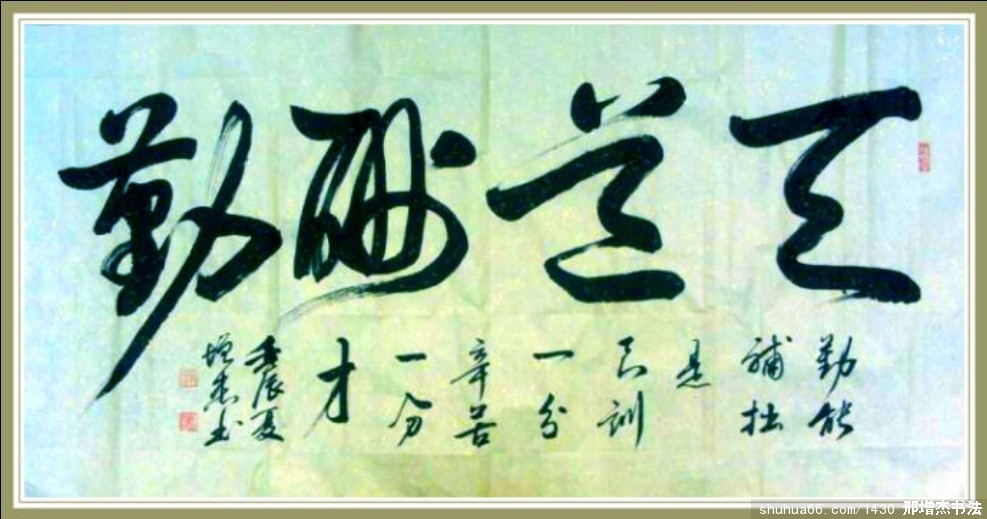 天道酬勤
勤能
补拙
是
良训
一分
辛苦
一分
才
壬辰夏
增杰书
shuhua66.com/1430 邢增杰书法